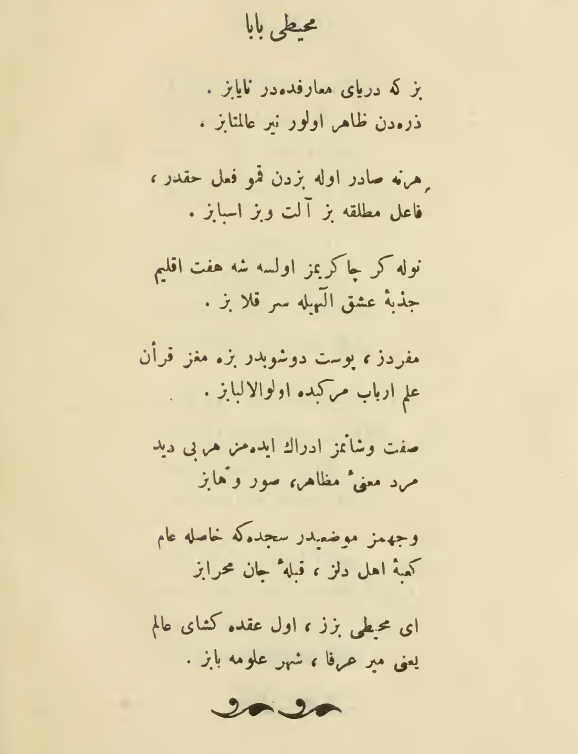 محیطی بابا
بز که دریای معارفده‌در نایابز .
ذره‌دن ظاهر اولور نیر عالمتابز ،
هرنه صادر اوله بزدن قمو فعل حقدر ،
فاعل مطلقه بز آلت وبز اسبابز .
نوله کر چاکریمز اولسه شه هفت اقلیم
جذبهٔ عشق الٓهیله سر قلا بز .
مفردز ، پوست دوشوبدر بزه مغز قرأن
علم ارباب مرکبده اولوالالبابز .
صفت وشانمز ادراك ایده‌مز هر بی دید
مرد معنیٔ مظاهر، صور وهابز
وجهمز موضعیدر سجده‌که خاصله عام
کعبهٔ اهل دلز ، قبلهٔ جان محرابز
ای محیطی بزز ، اول عقده کشای عالم
یعنی میر عرفا ، شهر علومه بابز .